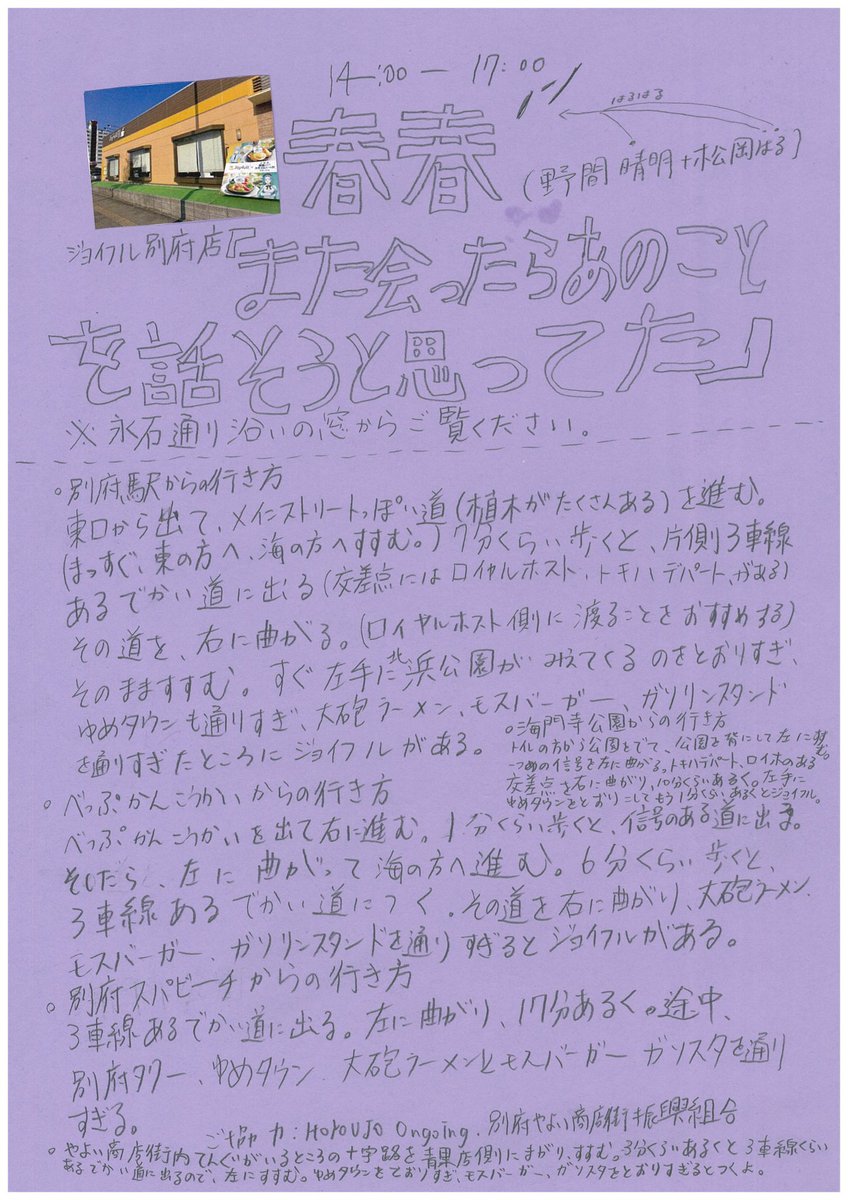 14:00 ー 17:00
はるはる
春春
(野間晴明+松岡はる)
ジョイフル別府店「また会ったらあのこと
を話そうと思ってた」
※ 永石通り沿いの窓からご覧ください。
○別府駅からの行き方
東口から出て、メインストリートっぽい道(植木がたくさんある)を進む。
(まっすぐ、東の方へ、海の方へすすむ。)7分くらい歩くと、片側3車線
あるでかい道に出る(交差点にはロイヤルホスト、トキハデパート、がある)
その道を、右に曲がる。(ロイヤルホスト側に渡ることをおすすめする)
そのまますすむ。すぐ左手に北浜公園がみえてくるのをとおりすぎ、
ゆめタウンも通りすぎ、大砲ラーメン、モスバーガー、ガソリンスタンド
を通りすぎたところにジョイフルがある。
○海門寺公園からの行き方
トイレの方から公園をでて、公園を背にして左にすすむ。
一つめの信号を左に曲がる。トキハデパート、ロイホのある
交差点を右に曲がり、10分くらいあるく。左手に
ゆめタウンをとおりこしてもう1分くらいあるくとジョイフル。
○べっぷかんこうかいからの行き方
べっぷかんこうかいを出て右に進む。1分くらい歩くと、信号のある道に出る。
そしたら、左に曲がって海の方へ進む。6分くらい歩くと、
3車線あるでかい道につく。その道を右に曲がり、大砲ラーメン、
モスバーガー、ガソリンスタンドを通りすぎるとジョイフルがある。
○別府スパビーチからの行き方
3車線あるでかい道に出る。左に曲がり、17分あるく。途中、
別府タワー、ゆめタウン 大砲ラーメンとモスバーガー ガソスタを通り
すぎる。
ご協力:HOTOUJO Ongoing. 別府やよい商店街振興組合
○やよい商店街内てんぐがいるところの十字路を青果店側にまがり、すすむ。3分くらいあるくと3車線くらい
あるでかい道に出るので、左にすすむ。ゆめタウンをとおりすぎ、モスバーガー、ガソスタをとおりすぎるとつくよ。